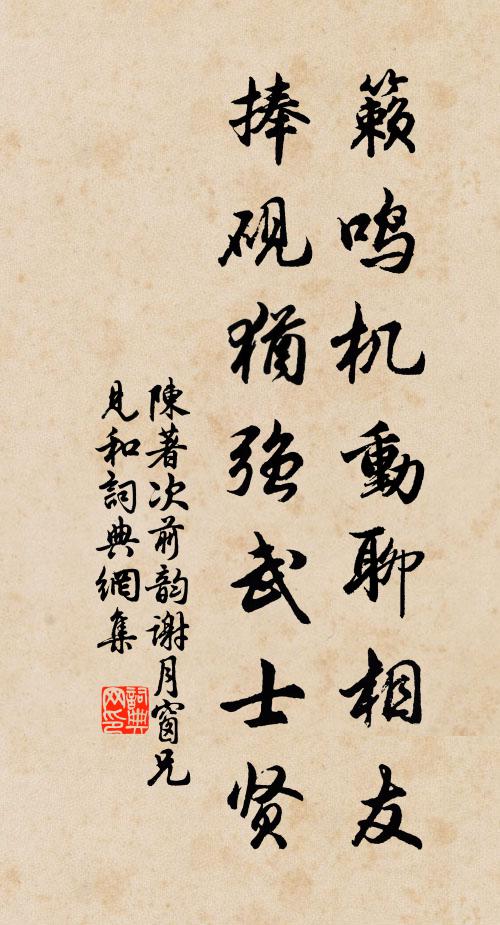 籁鸣机動聊相友
捧砚猶強武士贤
陳著次前韵谢月窗兄
見和詞典網集
詞典网印